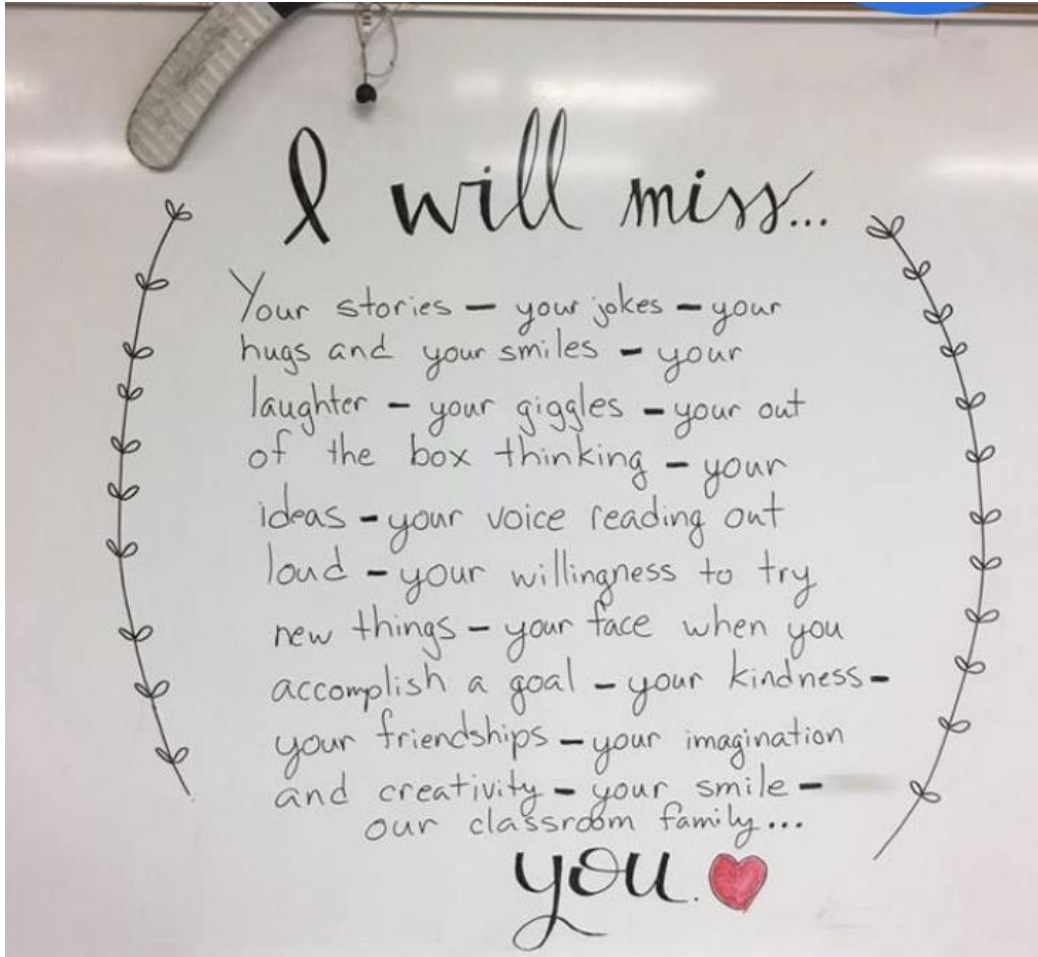 I will miss...
Your stories - your jokes - your
hugs and your smiles - your
laughter - your giggles - your out
of the box thinking - your
ideas - your voice reading out
loud - your willingness to try
new things - your face when you
accomplish a goal - your kindness -
your friendships - your imagination
and creativity - your smile -
our classroom family...
you.